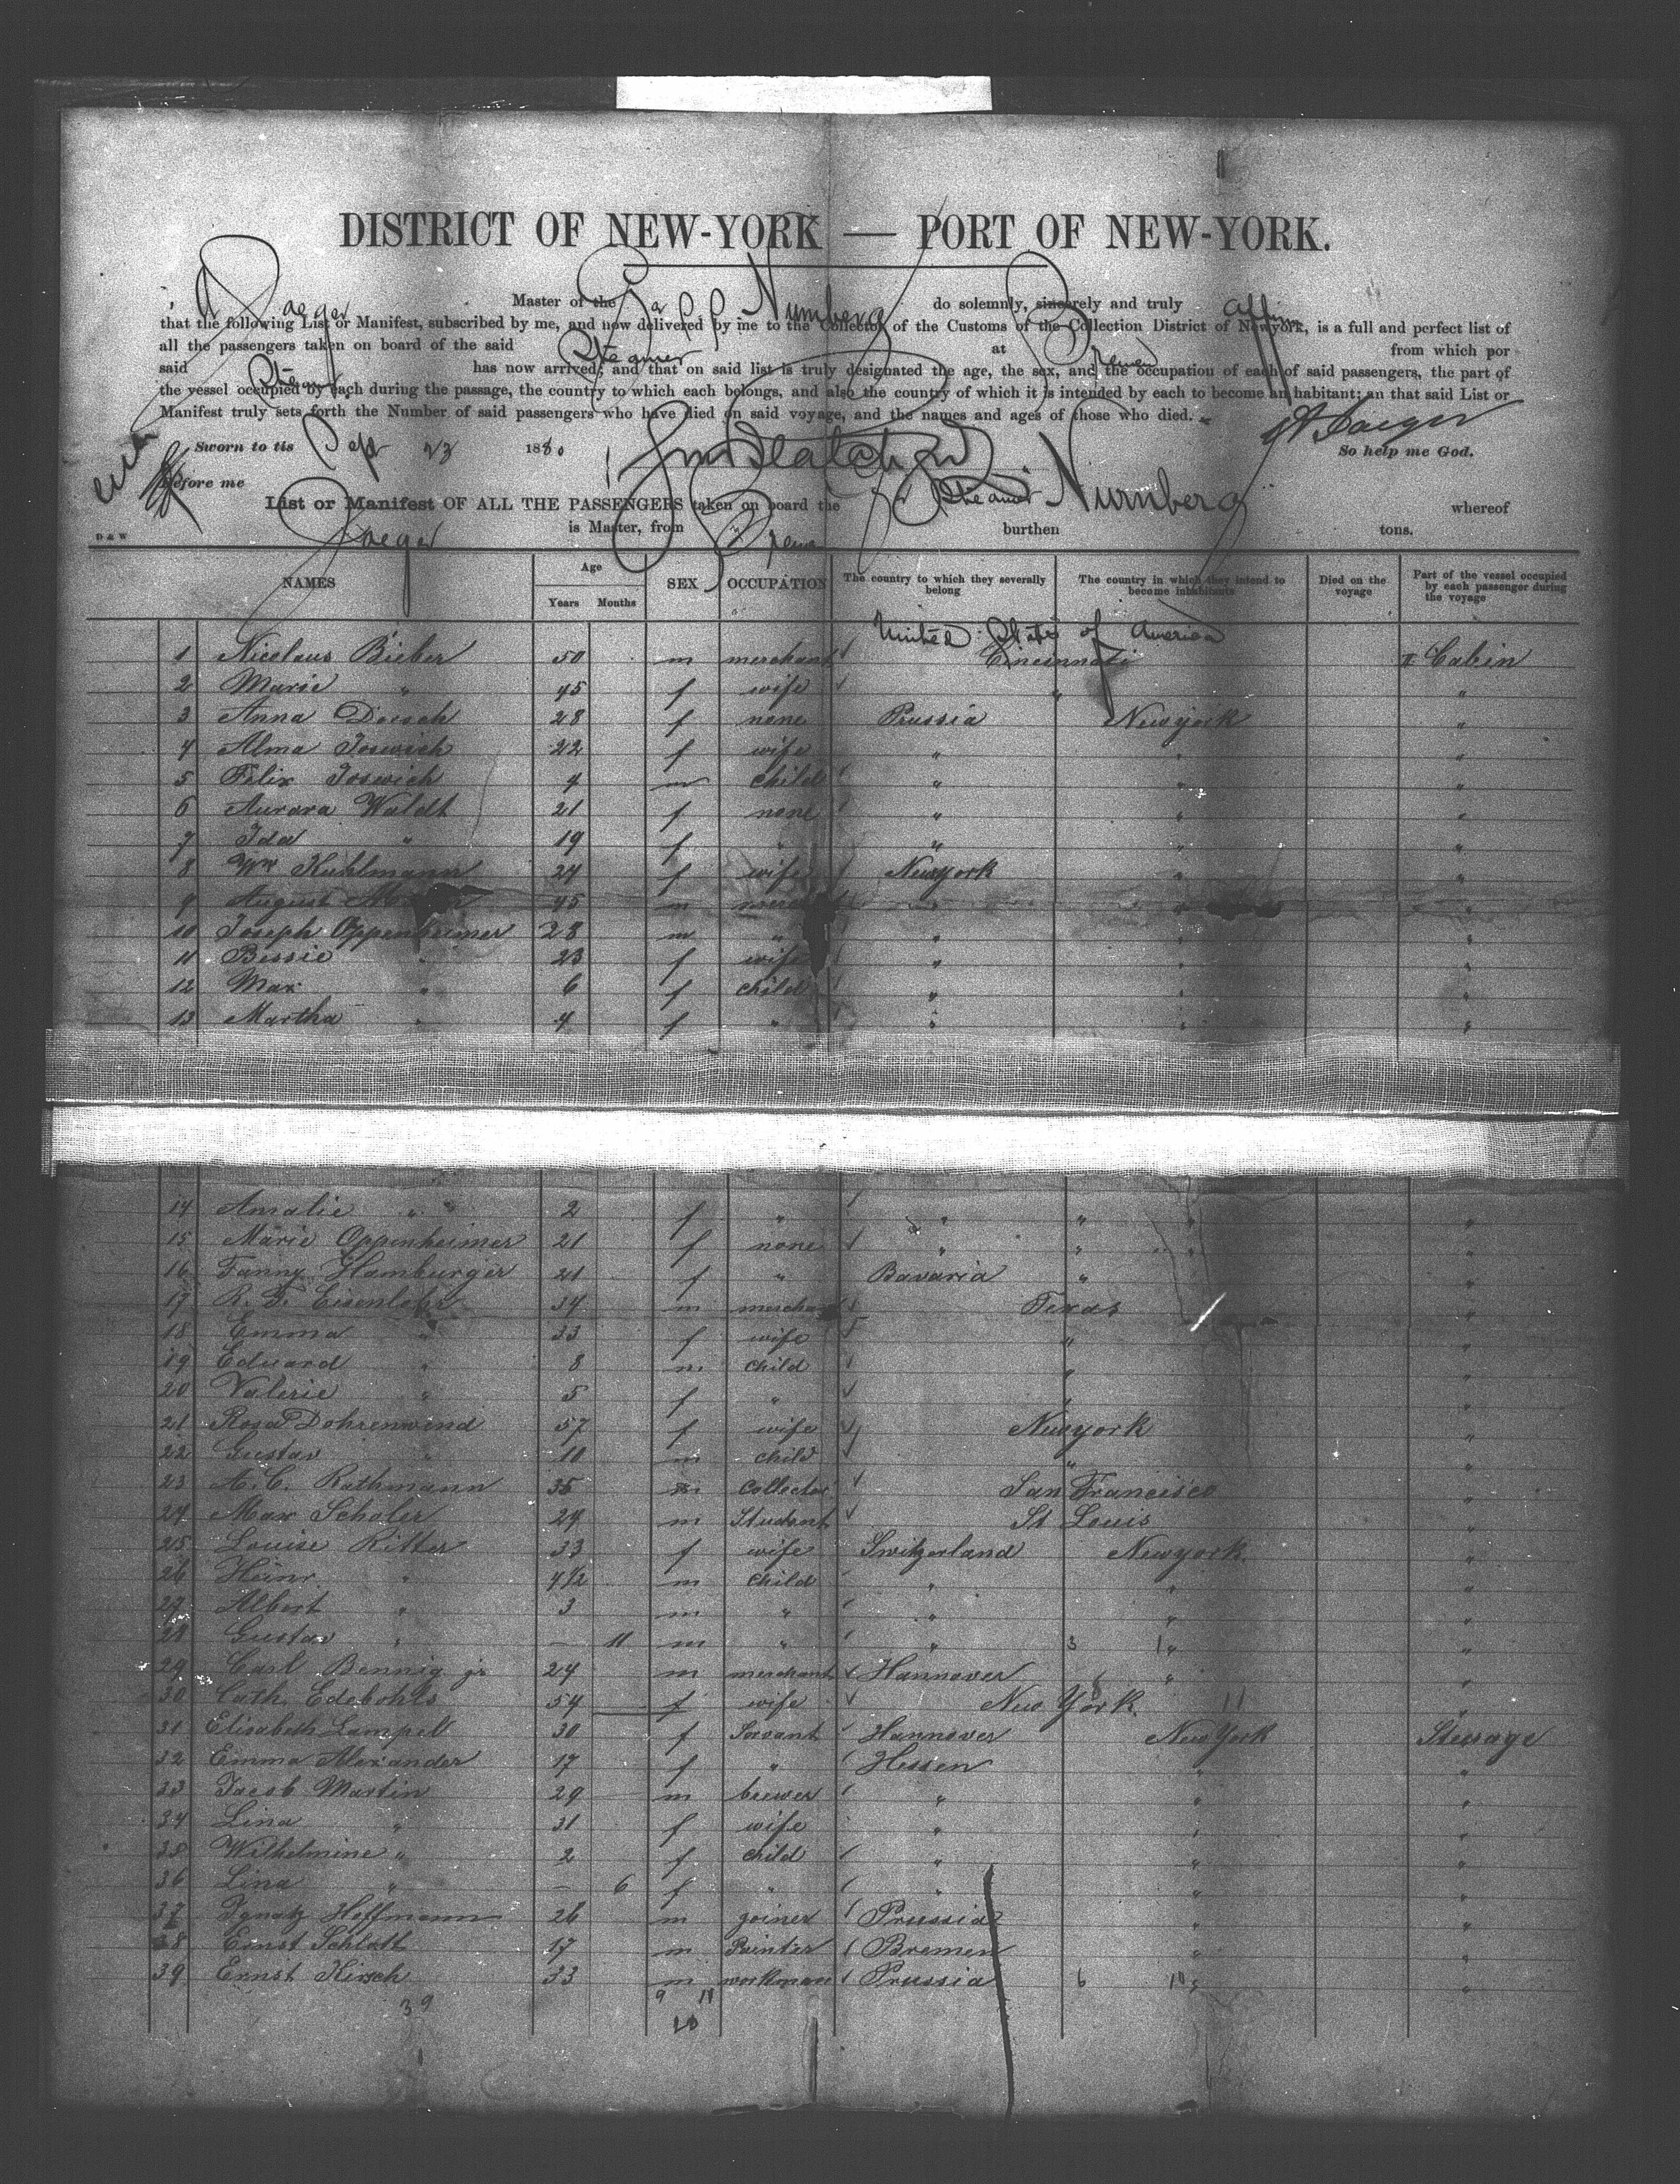 DISTRICT OF NEW-YORK — PORT OF NEW-YORK.
I, A Jaeger Master of the Nurnberg do solemnly, sincerely and truly affirm
that the following List or Manifest, subscribed by me, and now delivered by me to the Collector of the Customs of the Collection District of Newyork, is a full and perfect list of
all the passengers taken on board of the said Steamer at Bremen from which por
said Steamer has now arrived; and that on said list is truly designated the age, the sex, and the occupation of each of said passengers, the part of
the vessel occupied by each during the passage, the country to which each belongs, and also the country of which it is intended by each to become an habitant; an that said List or
Manifest truly sets forth the Number of said passengers who have died on said voyage, and the names and ages of those who died.
A Jaeger
Sworn to tis Sep 23 1880 So help me God.
Before me
List or Manifest OF ALL THE PASSENGERS taken on board the Steamer Nurnberg whereof
Jaeger is Master, from Bremen burthen tons.
D & W
NAMES Age Years Months SEX OCCUPATION The country to which they severally belong The country in which they intend to become inhabitants Died on the voyage Part of the vessel occupied by each passenger during the voyage
United States of America
1 Nicolaus Bieber 50 m merchant Cincinnati II Cabin
2 Marie " 45 f wife " "
3 Anna Dorsch 28 f none Prussia Newyork "
4 Alma Joswich 22 f wife " " "
5 Felix Joswich 4 m child " " "
6 Aurora Waldt 21 f none " " "
7 Ida " 19 f " " " "
8 Wm Kuhlmann 24 f wife Newyork " "
9 August 45 m " " "
10 Joseph Oppenheimer 28 m " " " "
11 Bessie " 23 f wife " " "
12 Max " 6 f child " " "
13 Martha " 4 f " " " "
14 Amalie " 2 f " " " "
15 Marie Oppenheimer 21 f none " " "
16 Fanny Hamburger 21 f " Bavaria " "
17 Eisenlohr 34 m merchant Texas "
18 Emma " 33 f wife " "
19 Eduard " 8 m child " "
20 Valerie " 5 f " " "
21 Rosa Dohrenwend 57 f wife Newyork "
22 Gustav " 10 m child " "
23 A. C. Rathmann 35 m Collector San Francisco "
24 Max Scholer 24 m Student St Louis "
25 Louise Ritter 33 f wife Switzerland Newyork "
26 Heinr. " 4 1/2 m child " " "
27 Albert " 3 m " " " "
28 Gustav " — 11 m " " 3 1 " "
29 Carl Bennig jr 24 m merchant Hannover " "
30 Cath. Edebohls 54 f wife New York 11 "
31 Elisabeth Lampell 30 f Servant Hannover New York Steerage
32 Emma Alexander 17 f " Hessen " "
33 Jacob Martin 29 m brewer " " "
34 Lina " 31 f wife " " "
35 Wilhelmine " 2 f child " " "
36 Lina " — 6 f " " " "
37 Ignatz Hoffmann 26 m joiner Prussia " "
38 Ernst Schlott 17 m Painter Bremen " "
39 Ernst Kirsch 33 m workman Prussia 6 10 "
39